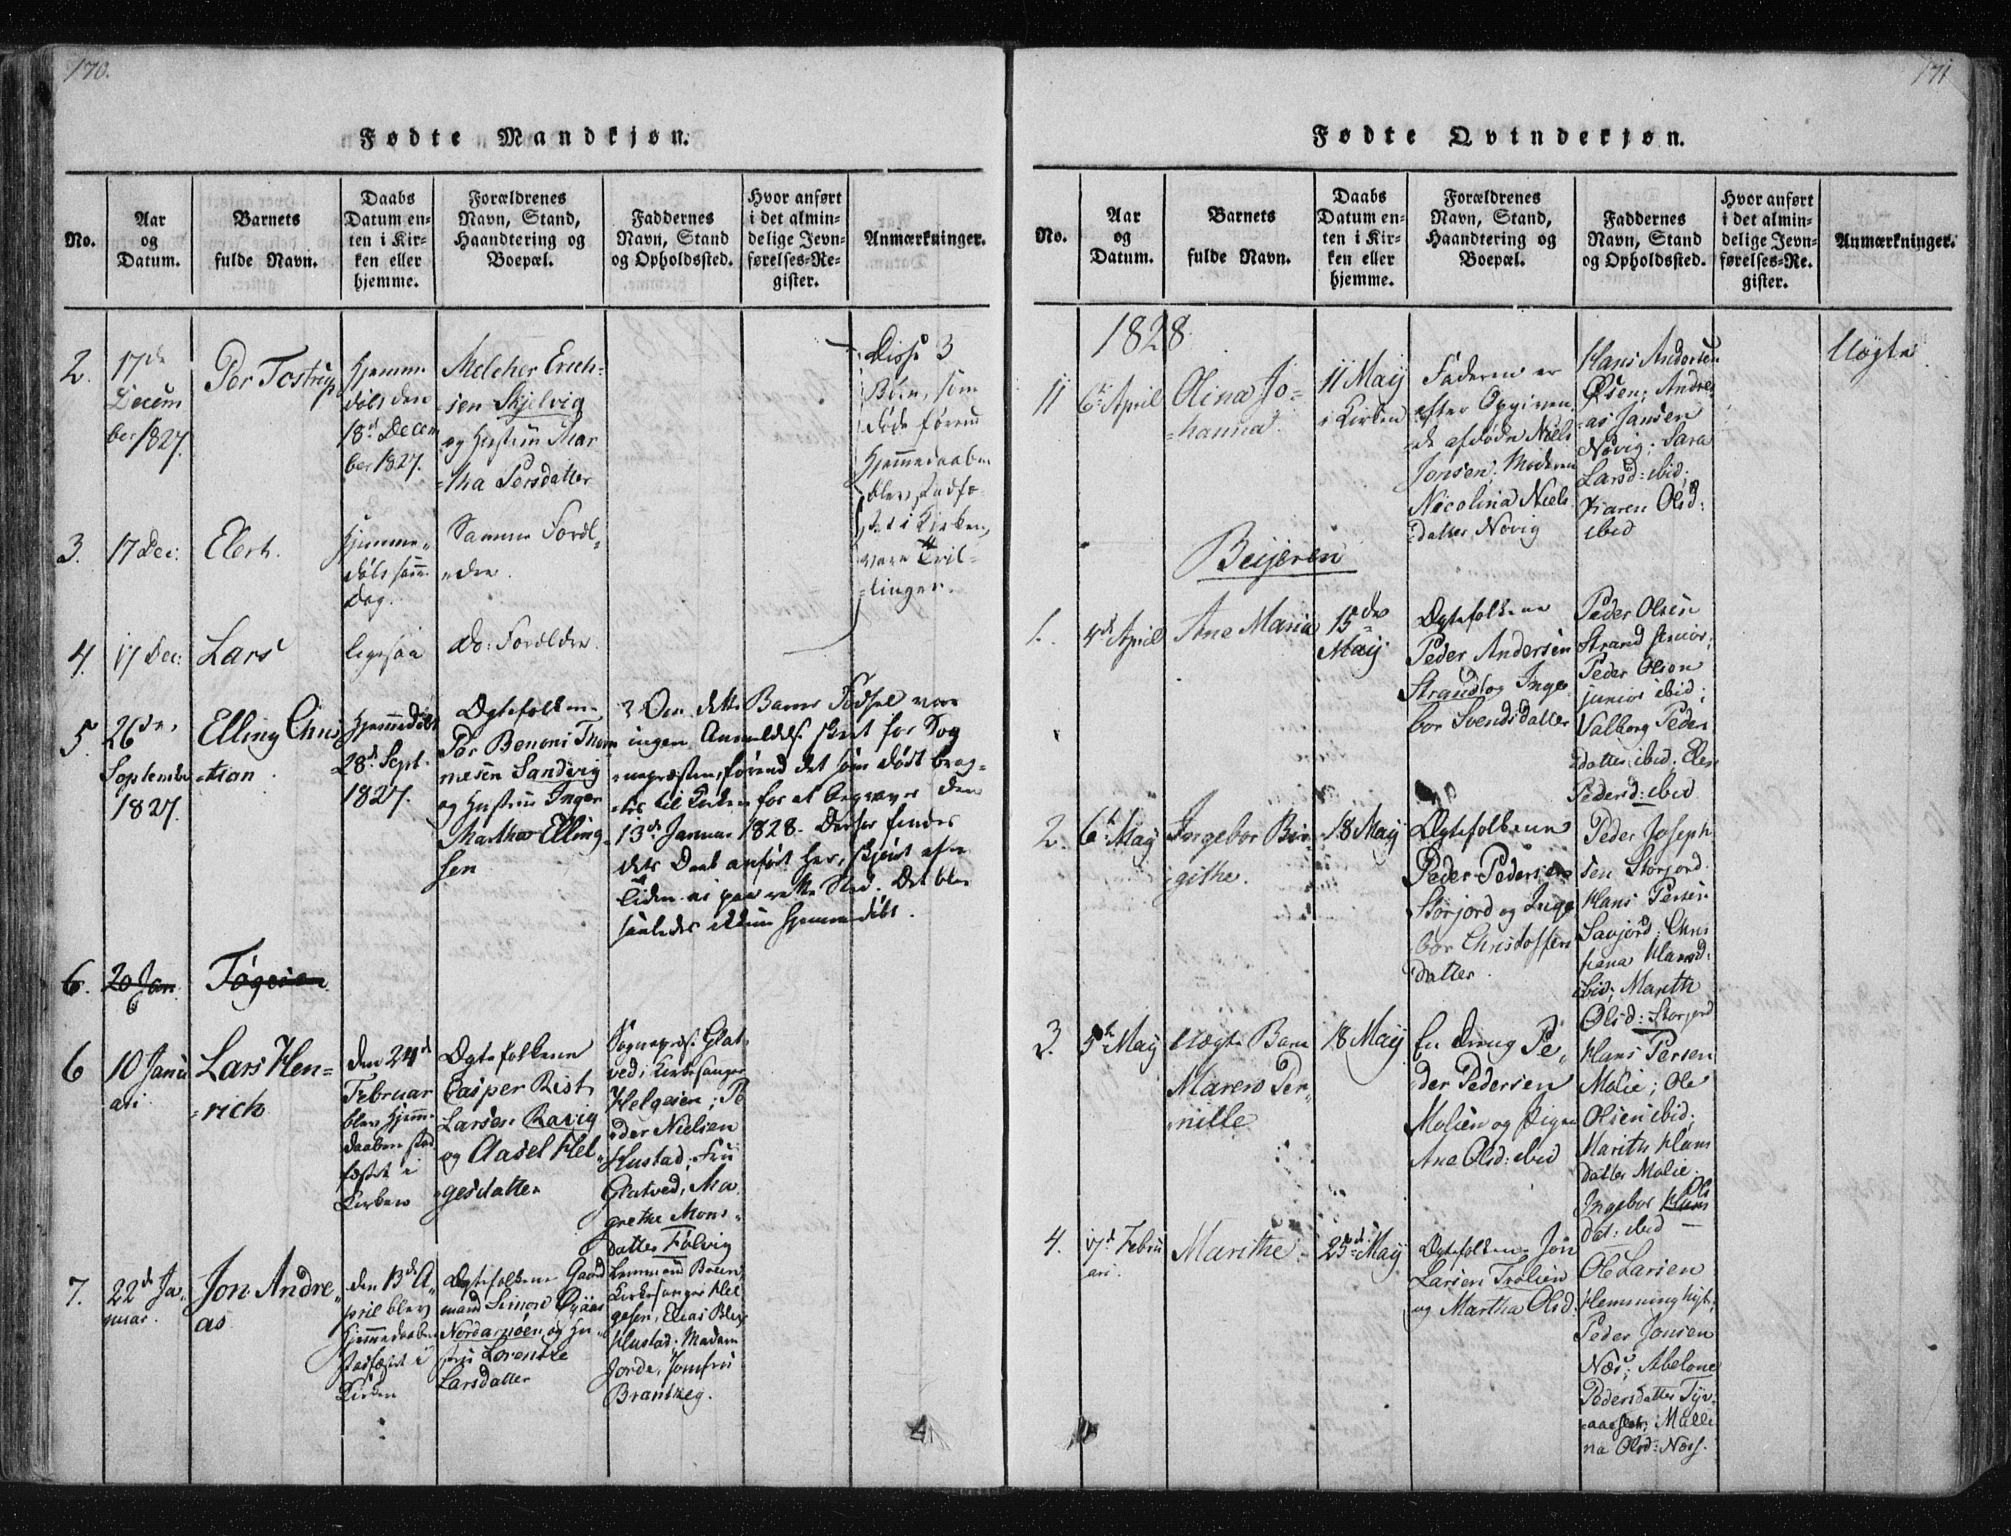 170.
Fødte Mandkjøn.
No.
Aar
og
Datum.
Barnets
fulde Navn.
Daabs
Datum en-
ten i Kir-
ken eller
hjemme.
Forældrenes
Navn, Stand,
Haandtering og
Boepæl.
Faddernes
Navn, Stand
og Opholdssted.
Hvor anført
i det almin-
delige Jevn-
førelses-Re-
gister.
Anmærkninger.
2.
17de
Decem
ber 1827.
Per Tostrup
Hjemme
døbt den
18d Decem
ber 1827.
Melcher Erich-
sen Skjelvig
og Hustrue Mar
tha Persdatter
Disse 3
Børn, som
døde førend
Hjemmedaaben
blev stadfæ-
stet i Kirken,
vare Tril-
linger.
3.
17 Dec:
Elert.
Hjemme-
døbt samme
Dag.
Samme Foræl-
dre.
4.
17 Dec:
Lars
ligesaa
do: Forældre.
5.
26de
Septembr
1827.
Elling Chris
-tian.
Hjemmedøbt
28d Sept.
1827.
Ægtefolkene
Per Benoni Thom
mesen Sandvig
og Hustrue Inger
Martha Elling
sen
Om dette Barns Fødsel var
ingen Anmeldelse skeet for Sog
nepræsten, førend det som dødt brag-
tes til Kirken for at begraves den
13de Januar 1828. Derfor findes
dets Daab anført her, skjønt efter
Tiden ei paa rette Sted. Det blev
saaledes ikkun hjemmedøbt.
6.
20 Jan.
Tøgersen
6
10 Janu
ari
Lars Hen=
=rich
den 24d
Februar
blev Hjemme
daaben stad
fæstet i
Kirken
Ægtefolkene
Casper Rist
Larsen Ravig
og Aasel Hel
gesdatter
Sognepræst Glat
ved; Kirkesanger
Helgesen; Pe
der Nielsen
Hustad; Fru
Glatved, Ma
grethe Mons
datter Følvig
7.
22de Ja
nuar.
Jon Andre
as
den 13de A
pril blev
Hjemmedaaben
stadfæstet i
Kirken
Ægtefolkene Gaard
mand Simon
Nordarnøen og Hu
strue Lorentze
Larsdatter
Kirkesanger Hel
gesen, Elias
Hustad; Madam
Jorde, Jomfru
Brantzeg.
171
Fødte Qvindekjøn.
No.
Aar
og
Datum.
Barnets
fulde Navn.
Daabs
Datum en-
ten i Kir-
ken eller
hjemme.
Forældrenes
Navn, Stand,
Haandtering og
Boepæl.
Faddernes
Navn, Stand
og Opholdssted.
Hvor anført
i det almin-
delige Jevn-
førelses-Re-
gister.
Anmærkninger.
1828.
11
6te April
Olina Jo-
=hanna.
11 Maij
i Kirken
Faderen er
efter Opgiven
de afdøde Niels
Jonsen; Moderen
Nicolina Niels
datter Novig
Hans Andersen
Øsen; Andre
as Jansen
Novig; Sara
Larsd: ibid;
Karen Olsd:
ibid
Uægte
Beijeren
1.
4de April
Ane Maria
15de
Maij
Ægtefolkene
Peder Andersen
Strand og Inge
bor Svendsdatter
Peder Olsen
Strand senior;
Peder Olsen
junior ibid;
Valborg Peder
datter ibid; Elen
Pedersd: ibid
2.
6te Maij
Ingebor Bir
githe.
18 Maij
Ægtefolkene
Peder Pedersen
Storjord og Inge
bor Christoffers
datter.
Peder Joseph
sen Storjord
Hans Persen
Savjord; Chris
tiana Hansd:
ibid; Marith
Olsd: Storjord
3.
5te Maij
Uægte Barn
Maren Per
nille
18 Maij
En Dreng Pe
der Pedersen
Molien og Pigen
Ane Olsd: ibid
Hans Persen
Molie; Ole
Olsen ibid;
Marith Hans
datter Molie.
Ingebor Hans Ols
dat: ibid
4.
17d Febru
ari.
Marithe.
25de Maij
Ægtefolkene Jon
Larsen Trolien
og Martha Olsd:
Ole Larsen
Peder Jonsen
Næs; Abelone
Pedersdatter
na Olsd: Næss.